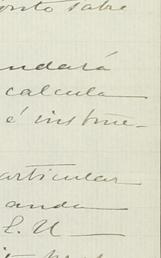 onto sabe
andará
calcula
é instru-
articular
anda
E. U